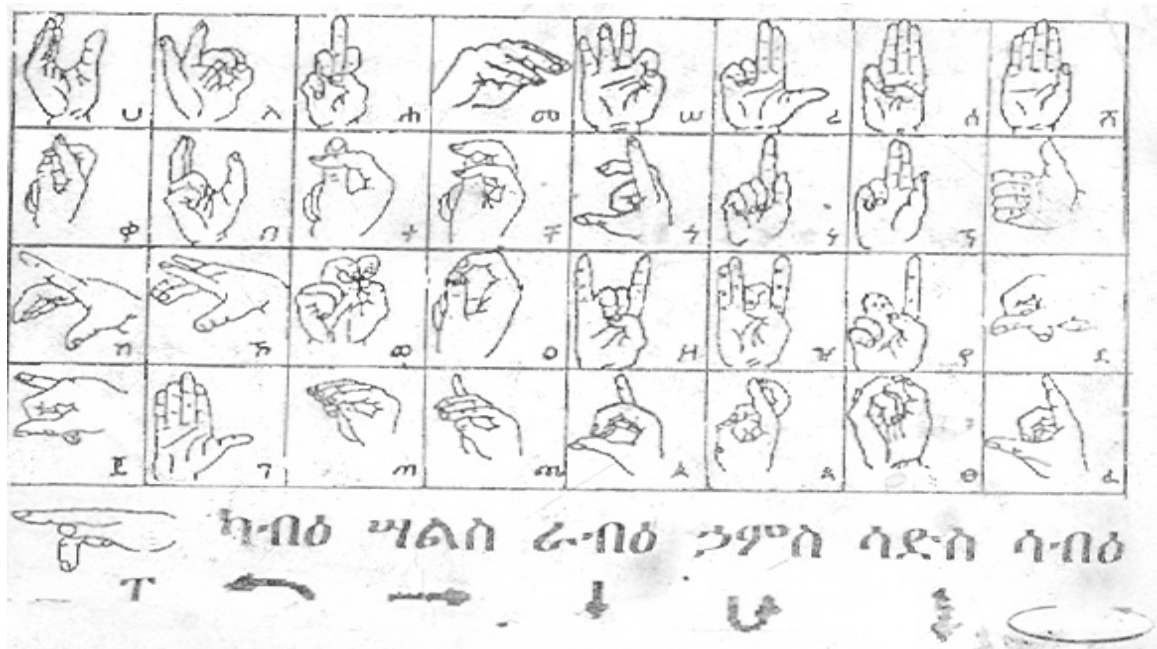 ሀ ለ ሐ መ ሠ ረ ሰ ሸ
ቀ በ ተ ቸ ኀ ነ ኘ
ከ ኸ ወ ዐ ዘ ዠ የ ደ
ጀ ገ ጠ ጨ ጰ ጸ ፀ ፈ
ካብዕ ሣልስ ራብዕ ኃምስ ሳድስ ሳብዕ
ፐ